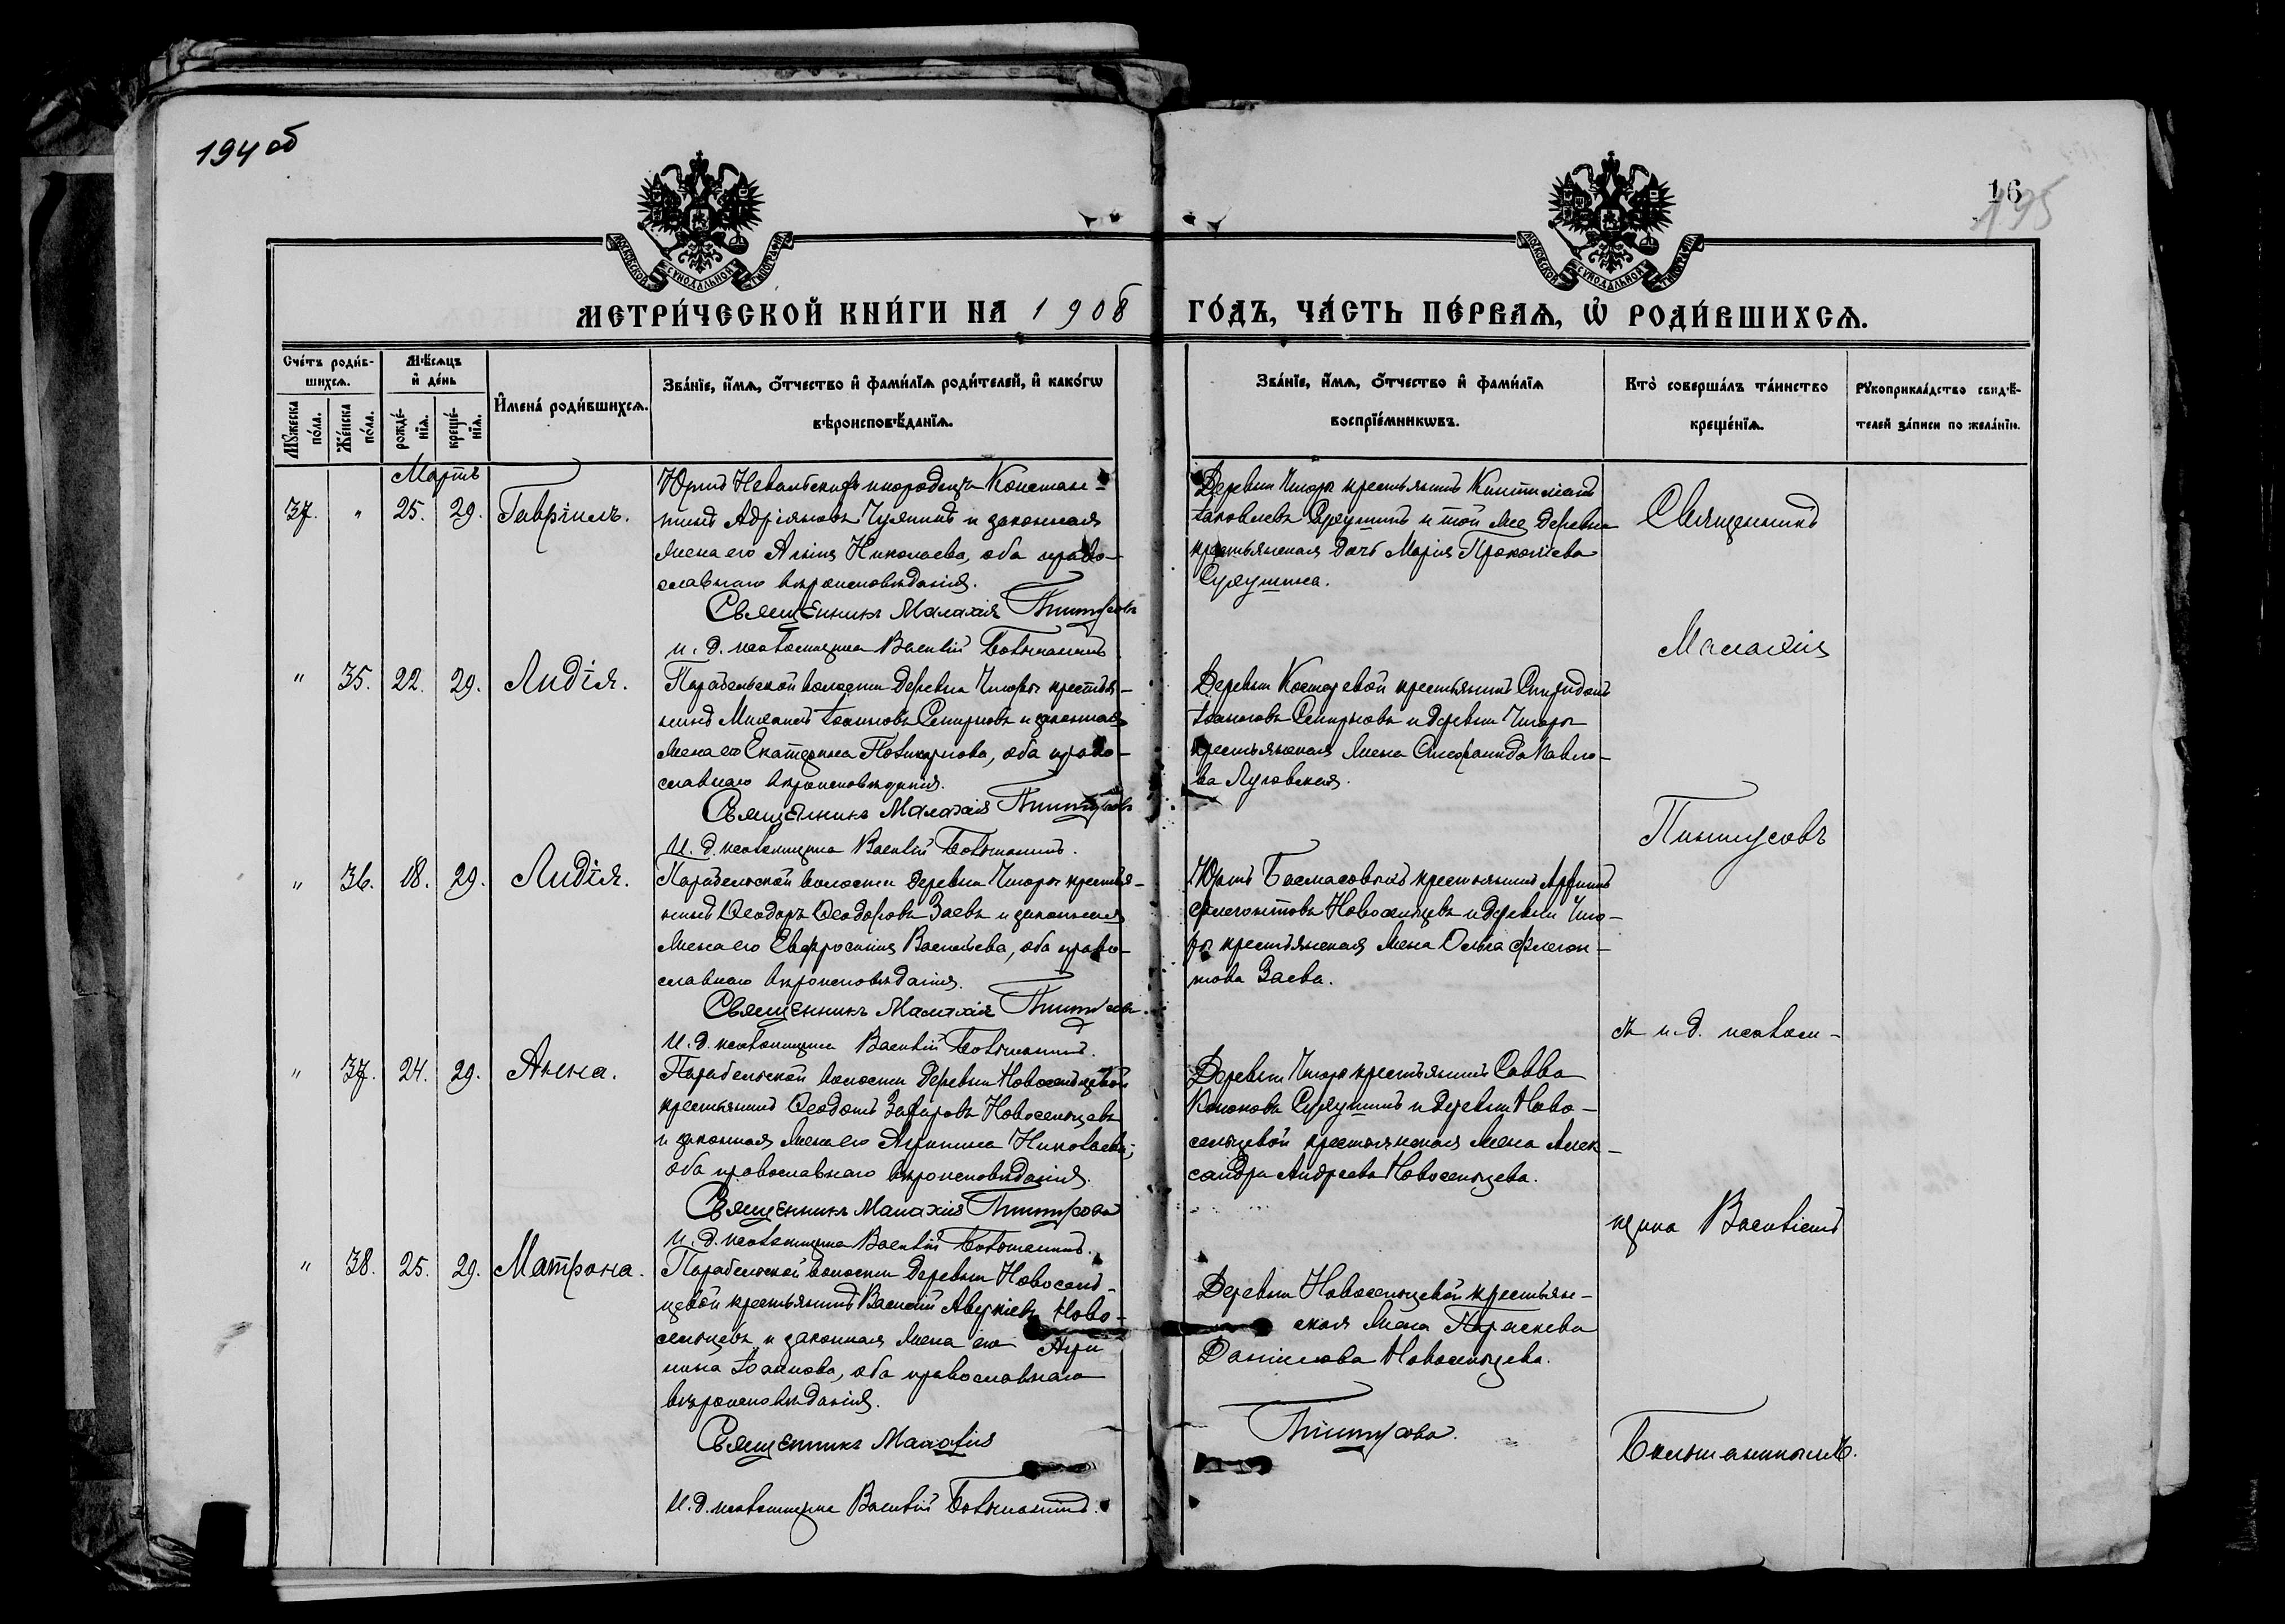 194 об
16
195
МОСКОВСКОЙ СѴНОДАЛЬНОЙ ТИПОГРАФІИ
МОСКОВСКОЙ СѴНОДАЛЬНОЙ ТИПОГРАФІИ
МЕТРИ́ЧЕСКОЙ КНИ́ГИ НА 1908 ГО́ДЪ, ЧА́СТЬ ПЕ́РВАѦ, Ѡ РОДИ́ВШИХСѦ.
Сче́тъ роди́в-
шихсѧ.
Мѣ́сѧцъ
и҆ де́нь
Мꙋ́жеска
по́ла.
Же́нска
по́ла.
рожде́-
нїѧ.
креще́-
нїѧ.
И҆мена̀ роди́вшихсѧ.
Зва́нїе, и҆́мѧ, ѻ҆́тчество и҆ фами́лїѧ роди́телей, и҆ како́гѡ
вѣроисповѣ́данїѧ.
Зва́нїе, и҆́мѧ, ѻ҆́тчество и҆ фами́лїѧ
воспрїе́мникѡвъ.
Кто̀ соверша́лъ та́инство
креще́нїѧ.
Рꙋкоприкла́дство свидѣ́-
телей за́писи по жела́нїю.
Мартъ
37. " 25. 29. Гавріилъ.
Юртъ Невальскихъ инородецъ Констан-
тинъ Адріановъ Чулинъ и законная
жена его Анна Николаева, оба право-
славнаго вѣроисповѣданія.
Священникъ Малахія
и. д. псаломщика Василій
Деревни Чигары крестьянинъ
Іаковлевъ Сухушинъ и той же деревни
крестьянская дочь Марія Прокопіева
Сухушина.
" 35. 22. 29. Лидія.
Парабельской волости деревни Чигары крестья-
нинъ Іоанновъ Смирновъ и законная
жена его Екатерина Поликарпова, оба право-
славнаго вѣроисповѣданія.
Священникъ Малахія
И. д. псаломщика Василій
Деревни Костаревой крестьянинъ Спиридонъ
Іоанновъ Смирновъ и деревни Чигары
крестьянская жена Степанида Павло-
ва Луговская.
" 36. 18. 29. Лидія.
Парабельской волости деревни Чигары крестья-
нинъ Ѳеодоръ Ѳеодоровъ Заевъ и законная
жена его Евфросинія Васильева, оба право-
славнаго вѣроисповѣданія.
Священникъ Малахія
И. д. псаломщика Василій
Юртъ Басмасовыхъ крестьянинъ
Флегонтовъ Новосельцевъ и деревни Чига-
ры крестьянская жена Ольга Флегон-
това Заева.
" 37. 24. 29. Анна.
Парабельской волости деревни Новосельцевой
крестьянинъ Ѳеодотъ Новосельцевъ
и законная жена его Агрипина Николаева,
оба православнаго вѣроисповѣданія.
Священникъ Малахія
И. д. псаломщика Василій
Деревни Чигары крестьянинъ Савва
Кононовъ Сухушинъ и деревни Ново-
сельцевой крестьянская жена Алек-
сандра Андреева Новосельцева.
" 38. 25. 29. Матрона.
Парабельской волости деревни Новосель-
цевой крестьянинъ Василій Аверкіевъ Ново-
сельцевъ и законная жена его Агри
пина Іоаннова, оба православнаго
вѣроисповѣданія.
Священникъ Малахія
И. д. псаломщика Василій
Деревни Новосельцевой крестьян-
ская жена Параскева
Даніилова Новосельцева.
Священникъ
Малахія
съ и. д. псалом-
щика Василіемъ